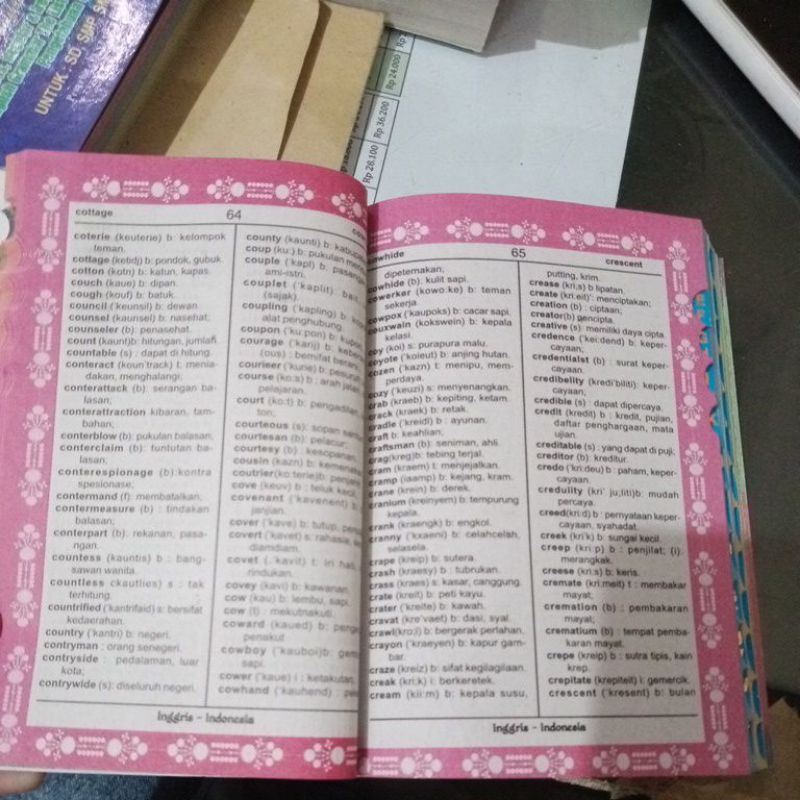 UNTUK : SD, SMP, SM
Rp 28.100
Rp 36.200
Rp 24.000
cottage
64
coterie (keuterie) b: kelompok
teman.
cottage (ketidj) b: pondok, gubuk.
cotton (kotn) b: katun, kapas.
couch (kaue) b: dipan.
cough (kouf) b: batuk.
council ('keunsil) b: dewan.
counsel (kaunsel) b: nasehat;
counseler (b): penasehat.
count (kaunt)b: hitungan, jumlah.
countable (s) : dapat di hitung.
conteract (koun'track) t. menia-
dakan, menghalangi.
conterattack (b): serangan ba-
lasan;
conterattraction kibaran, tam-
bahan;
conterblow (b): pukulan balasan;
conterclaim (b): tuntutan ba-
lasan;
conterespionage (b):kontra
spesionase;
contermand (f): membatalkan;
contermeasure (b) : tindakan
balasan;
conterpart (b): rekanan, pasa-
ngan.
countess (kauntis) b : bang-
sawan wanita.
countless (kautlies) s : tak
terhitung.
countrified ('kantrifaid) s: bersifat
kedaerahan.
country ('kantri) b: negeri.
contryman : orang senegeri.
contryside : pedalaman, luar
kota;
contrywide (s): diseluruh negeri.
county (kaunti) b: kabupa
coup (ku:) b: pukulan
couple ('kapl) b: pasang
ami-istri.
couplet ('kaplit) bait
(sajak).
coupling ('kapling) b:
alat penghubung.
coupon ('ku:pon) b: kupon
courage ('karij) b:
(ous) : bersifat berani
courieer ('kurie) b: pesuruh
course (ko:s) b : arah jalan
pelajaran.
court (ko:t) b: pengadilan,
ton;
courteous (s): sopan
courtesan (b): pelacur;
courtesy (b) : kesopanan
cousin (kazn) b: kemenakan
coutrier(ko:terie)b:
cove (keuv) b: teluk kecil,
covenant ('kavenent) b:
janjian.
cover ('kave) b: tutup,
covert ('kavet) s: rahasia,
diamdiam.
covet (.'kavit) t: iri hati,
rindukan.
covey (kavi) b: kawanan.
cow (kau) b: lembu, sapi.
cow (t) : mekutnakuti.
coward (kaued) b:
penakut
cowboy ('kauboi)b:
sapi.
cower ('kaue) i : ketakutan.
cowhand ('kauhend) :
Inggris - Indonesia
65
crescent
dipetemakan;
cowhide (b): kulit sapi.
cowerker (kowo:ke) b: teman
sekerja.
cowpox ('kaupoks) b: cacar sapi.
couxwain (kokswein) b: kepala
kelasi.
coy (koi) s: purapura malu.
coyote ('koieut) b: anjing hutan.
cozen ('kazn) t: menipu, mem-
perdaya.
cozy ('keuzi) s: menyenangkan.
crab (kraeb) b: kepiting, ketam.
crack (kraek) b: retak.
cradle ('kreidl) b : ayunan.
craft b: keahlian;
craftsman (b): seniman, ahli.
crag(kreg)b: tebing terjal.
cram (kraem) t: menjejalkan.
cramp (iaamp) b: kejang, kram.
crane (krein) b: derek.
cranium (kreinyem) b: tempurung
kepala.
crank (kraengk) b: engkol.
cranny ('kxaeni) b: celahcelah,
selasela.
crape (kreip) b: sutera.
crash (kraesy) b : tubrukan.
crass (kraes) s: kasar, canggung.
crate (kreit) b: peti kayu.
crater ('kreite) b: kawah.
cravat (kre'vaet) b: dasi, syal.
crawl(kro;l) b: bergerak perlahan.
crayon ('kraeyen) b: kapur gam-
bar.
craze (kreiz) b: sifat kegilagilaan.
creak (kri:k) i: berkeretek.
cream (kii:m) b: kepala susu,
putting, krim.
crease (kri;s) b lipatan.
create (kri:eit)': menciptakan;
creation (b) : ciptaan;
creator(b) pencipta.
creative (s): memiliki daya cipta.
credence ('kei:dend) b: keper-
cayaan.
credentialst (b) : surat keper-
cayaan.
credibelity (kredi'biliti): keper-
cayaan;
credible (s) : dapat dipercaya.
credit (kredit) b : kredit, pujian,
daftar penghargaan, mata
ujian.
creditable (s) : yang dapat di puji;
creditor (b): kreditur.
credo ('kri:deu) b : paham, keper-
cayaan.
credulity (kri' ju;liti)b: mudah
percaya.
creed(kri:d) b : pernyataan keper-
cayaan, syahadat.
creek (kri'k) b: sungai kecil.
creep (kri:p) b : penjilat; (i):
merangkak.
creese (kri:s) b: keris.
cremate (kri:meit) t : membakar
mayat;
cremation (b) : pembakaran
mayat;
crematium (b) : tempat pemba-
karan mayat.
crepe (kreip) b : sutra tipis, kain
krep.
crepitate (krepiteit) i: gemercik.
crescent ('kresent) b: bulan
Inggris - Indonesia